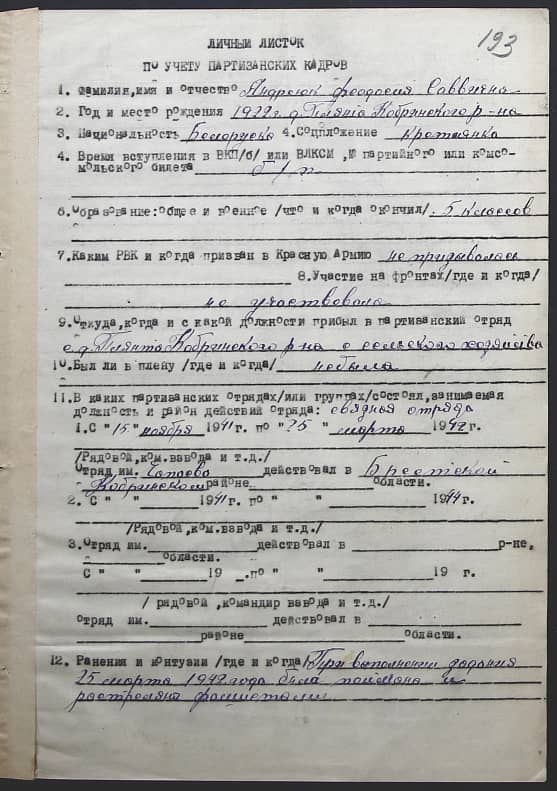 193
ЛИЧНЫЙ ЛИСТОК
ПО УЧЕТУ ПАРТИЗАНСКИХ КАДРОВ
1. Фамилия,имя и отчество Андросюк Феодосия Саввична
2. Год и место рождения 1922 г. д. Плянта Кобринского р-на
3. Национальность Белоруска 4.Соцположение крестьянка
4. Время вступления в ВКП/б/ или ВЛКСМ ,№ партийного или комсо-
мольского билета б/п
6.Образование:общее и военное /что и когда окончил/ 5 классов
7.Каким РВК и когда призван в Красную Армию не призывалась
8.Участие на фронтах/где и когда/
не участвовала
9.Откуда,когда и с какой должности прибыл в партизанский отряд
с д. Плянта Кобринского р-на с сельского хозяйства
10.Был ли в плену /где и когда/ не была
11.В каких партизанских отрядах/или группах/состоял,занимаемая
должность и район действий отряда: связная отряда
1.С "15" ноября 1941 г. по "25" марта 1942 г.
/Рядовой,ком.взвода и т.д./
Отряд им. Чапаева действовал в Брестской
Кобринском районе области.
2. С " " 1941 г. по " " 1944 г.
/Рядовой,ком.взвода и т.д./
3.Отряд им. действовал в р-не,
области.
С " " 19 .по " " 19 г.
/ рядовой ,командир взвода и т.д./
отряд им. действовал в
районе области.
12. Ранения и контузии /где и когда/ При выполнении задания
25 марта 1942 года была поймана и
растреляна фашистами